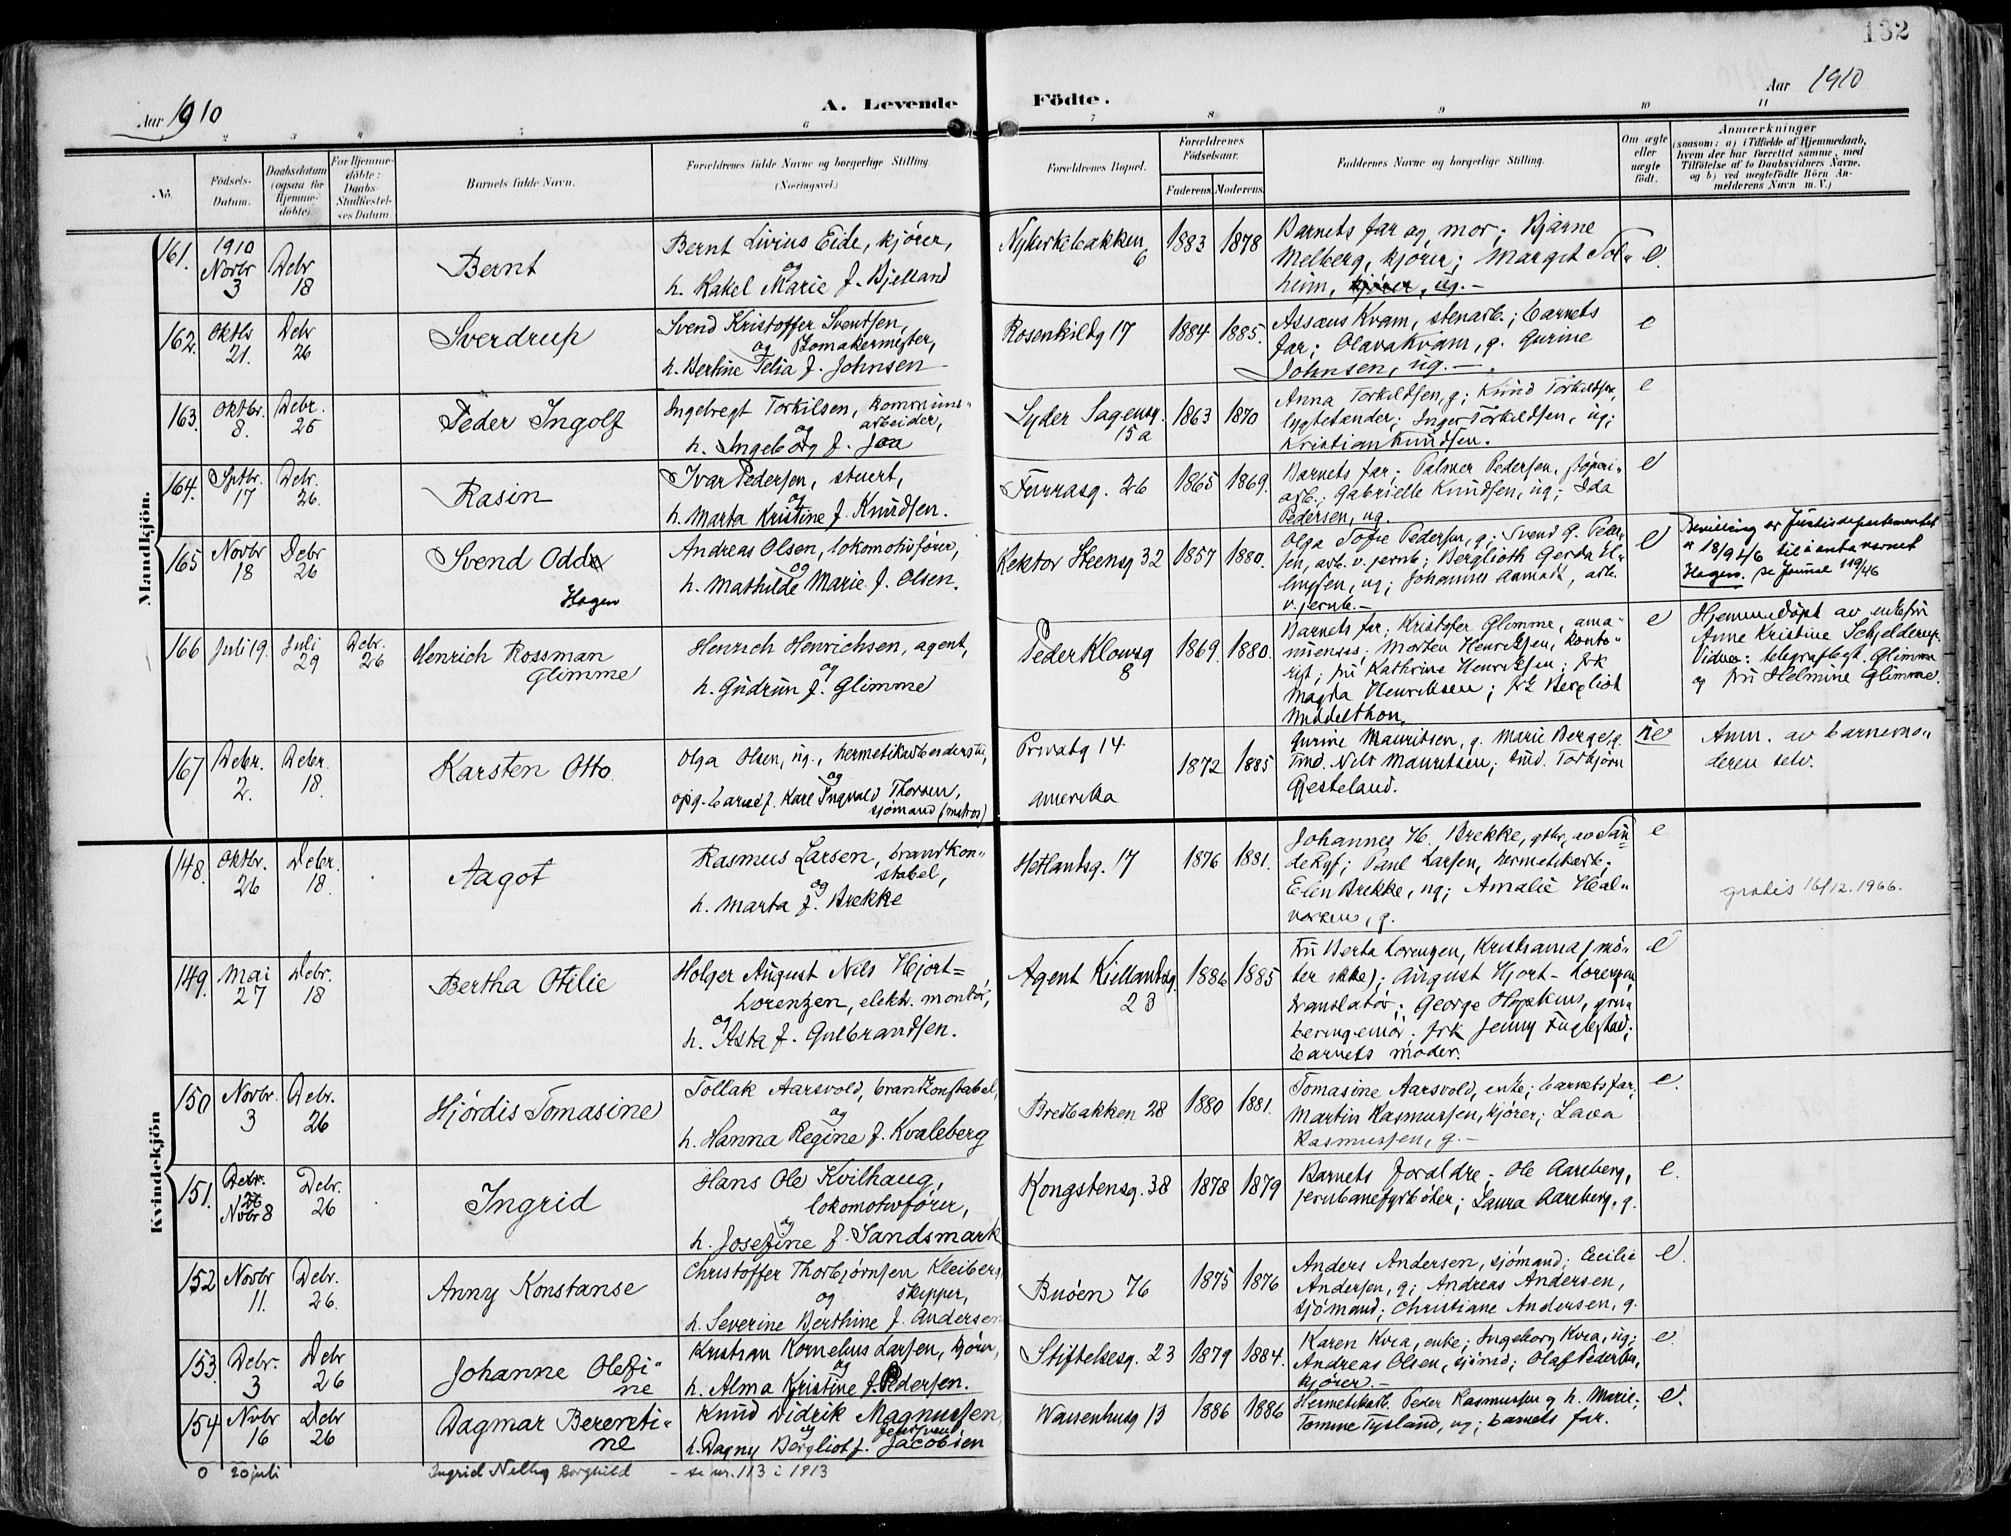 132
Aar 1910
A. Levende Födte.
Aar 1910
2 3 4 5 6 7 8 9 10 11
No.
Födsels-
Datum.
Daabsdatum
(ogsaa for
Hjemme-
döbte).
For Hjemme-
döbte:
Daabs-
Stadfæstel-
ses Datum
Barnets fulde Navn.
Forældrenes fulde Navne og borgerlige Stilling.
(Næringsvei.)
Forældrenes Bopæl.
Forældrenes
Födselsaar.
Faderens. Moderens.
Faddernes Navne og borgerlige Stilling.
Om ægte
eller
uægte
födt.
Anmærkninger
(saasom: a) i Tilfælde af Hjemmedaab,
hvem der har forrettet samme, med
Tilföielse af to Daabsvidners Navne.
og b) ved uægtefödte Börn An-
melderens Navn m. V.)
Mandkjön.
161. 1910 Novbr 3 Debr 18
Bernt
Bernt Livius Eide, kjörer,
og
h. Rakel Marie f. Bjelland
Nykirkebakken 6
1883 1878
Barnets far og mor; Bjarne
Melberg, kjörer; Margit Sol-
heim, kjörer, ug. –
e.
162. Oktbr 21. Debr 26
Sverdrup
Svend Kristoffer Svendsen,
og skomakermester,
h. Bertine Felia f. Johnsen
Rosenkildg 17
1884 1885.
Assæus Kvam, stenarb.; barnets
far; Olava Kvam, g. Gurine
Johnsen, ug. –
e
163. Oktbr. 8. Debr. 25
Peder Ingolf
Ingebregt Torkilsen, kommune-
arbeider,
og
h. Ingeborg f. Joa
Lyder Sagensg. 15a
1863 1870
Anna Torkildsen, g; Knud Torkildsen,
lygtetænder; Inger Torkildsen, ug;
Kristian Knudsen.
e
164. Septbr. 17 Debr. 26.
Rasin
Ivar Pedersen, stuert,
og
h. Marta Kristine f. Knudsen.
Furrasg. 26
1865 1869.
Barnets far; Palmer Pedersen, støperi-
arb.; Gabrielle Knudsen, ug; Ida
Pedersen, ug.
e
165 Novbr 18 Debr 26
Svend Odde
Hagen
Andreas Olsen, lokomotivfører,
og
h. Mathilde Marie f. Olsen.
Rektor Steensg 32
1857 1880.
Olga Sofie Pedersen, g; Svend G. Peder-
sen, arb. v. jernb; Berglioth Gerda El-
lingsen, ug; Johannes Aamodt, arb.
v. jernb. –
e
Bevilling av Justisdepartementet
a 18/9 46 til å anta navnet
Hagen. se Journal 119/46
166 Juli 19. Juli 29 Debr. 26
Henrich Rossman
Glimme
Henrich Henrichsen, agent,
og
h. Gudrun f. Glimme
Peder Klowsg 8
1869. 1880.
Barnets far; Kristofer Glimme, ama-
nuensis; Morten Henriksen, konto-
rist; fru Kathrine Henriksen; frk
Magda Henriksen; frk Bergliot
Middelthon.
e
Hjemmedøpt av enkefru
Anne Kristine Schjelderup.
Vidner: telegrafbest. Glimme
og fru Helmine Glimme.
167 Debr. 2. Debr. 18.
Karsten Otto.
Olga Olsen, ug., hermetikarbeiderske,
og
opg. barnef. Karl Ingvald Thorsen,
sjömand (matros)
Privatg 14
Amerika
1872 1885
Gurine Mauritsen, g. Marie Berge, g.
Nils Mauritsen; Torbjørn
Gjesteland.
ue
Anm. av barnemo-
deren selv.
Kvindekjön
148. Oktbr. 26 Debr. 18.
Aagot
Rasmus Larsen, brandkon-
stabel,
og
h. Marta f. Brekke
Hetlandsg. 17
1876 1881.
Johannes H. Brekke, gbr, av San-
de Ryf; Paul Larsen, hermetikarb.
Elen Brekke, ug; Amalie Heal-
vorsen, g.
e
gratis 16/12.1966.
149. Mai 27 Debr. 18
Bertha Otilie
Holger August Nils Hjort-
Lorenzen, elektr. montør,
og
h. Asta f. Gulbrandsen.
Agent Kiellandsg. 23
1886 1885
Fru Berta Lorenzen, Kristiania (mø-
ter ikke); August Hjort-Lorenzen,
translatør; George Hopkins, gra-
veringsmør; frk Jenny Fuglestad;
barnets moder.
e
150 Novbr. 3 Debr. 26
Hjördis Tomasine
Tollak Aarsvold, brandkonstabel,
og
h. Hanna Regine f. Kvaleberg
Bredbakken 28
1880 1881.
Tomasine Aarsvold, enke; barnets far;
Martin Rasmussen, kjörer; Lava
Rasmussen, g. –
e.
151. Debr. 26 Novbr 8 Debr. 26
Ingrid
Hans Ole Kvilhaug,
lokomotivfører,
og
h. Josefine f. Sandsmark
Kongstensg. 38
1878 1879
Barnets foraldre; Ole Aareberg,
jernbanefyrbøter; Laura Aareberg, g.
e.
152 Novbr 11. Debr. 26.
Anny Konstanse
Christoffer Thorbjørnsen Kleiberg,
og skipper,
h. Severine Berthine f. Andersen
Buøen 76
1875 1876
Anders Andersen, sjömand; Cecilie
Andersen, g; Andreas Andersen,
sjömand; Christiane Andersen, g.
e
153. Debr. 3 Debr 26
Johanne Olefi-
ne
Kristian Kornelius Larsen, kjörer,
og
h. Alma Kristine f. Pedersen.
Stiftelsesg. 23
1879 1884.
Karen Kvia, enke; Ingeborg Kvia, ug;
Andreas Olsen, sjömd; Olaf Pedersen,
kjörer –
e
154 Novbr 16 Debr 26
Dagmar Berenti-
ne
Knud Didrik Magnussen,
og
h. Dagny Bergliot f. Jacobsen
Waisenhusg 13
1886 1886
Hermetikarb. Peder Rasmussen og h. Marie;
Tomine Tysland, ug; barnets far.
e.
0 20 juli Ingrid Nelly Borghild – se nr. 113 i 1913